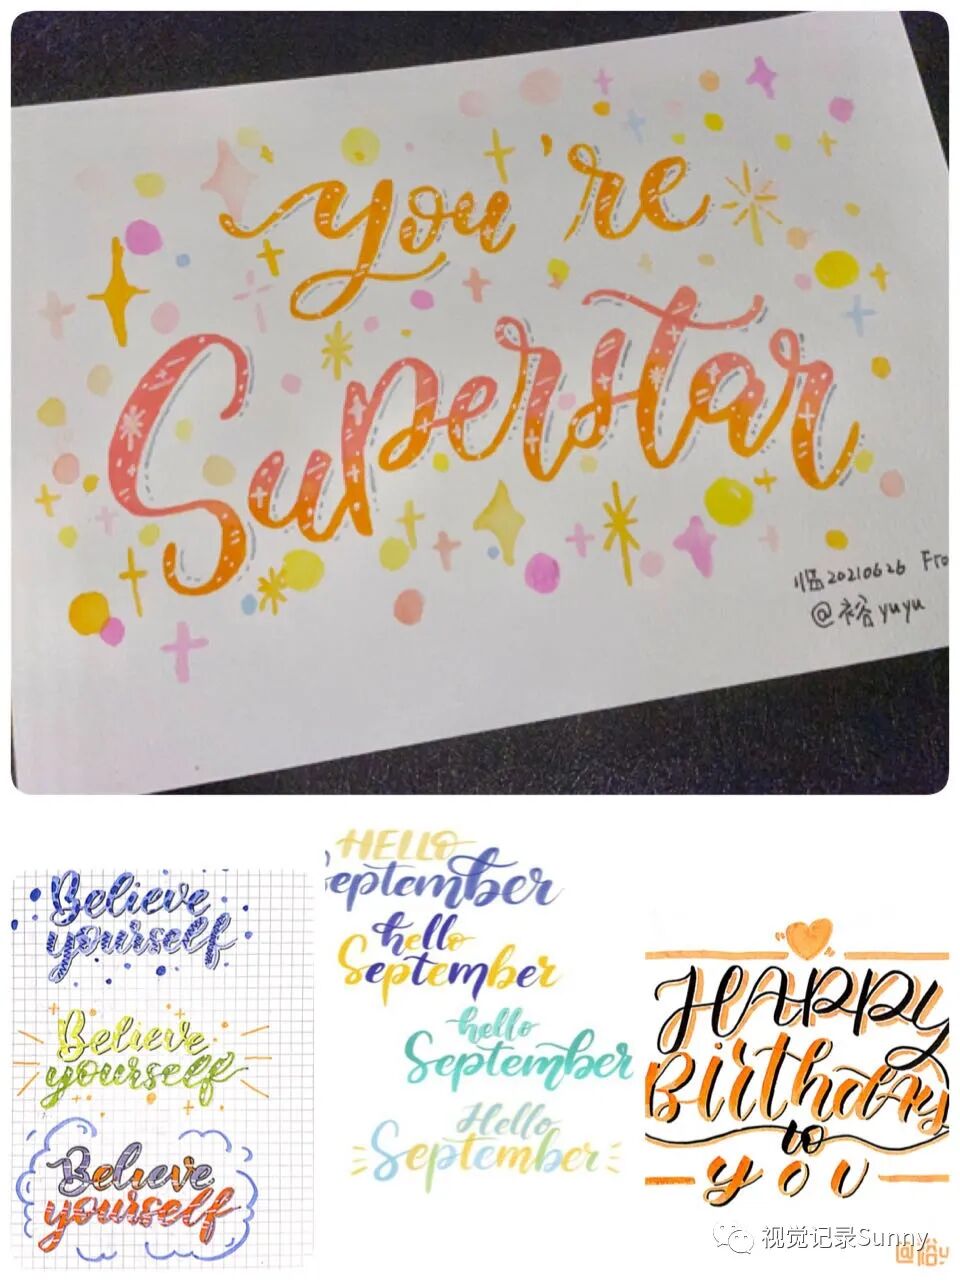 you're
Superstar
临20210626 Fro
@裕yuyu
Believe
yourself
Believe
yourself
Believe
yourself
HELLO
September
hello
September
hello
September
Hello
September
HAPPY
Birthday
to
you
视觉记录Sunny
@裕yu